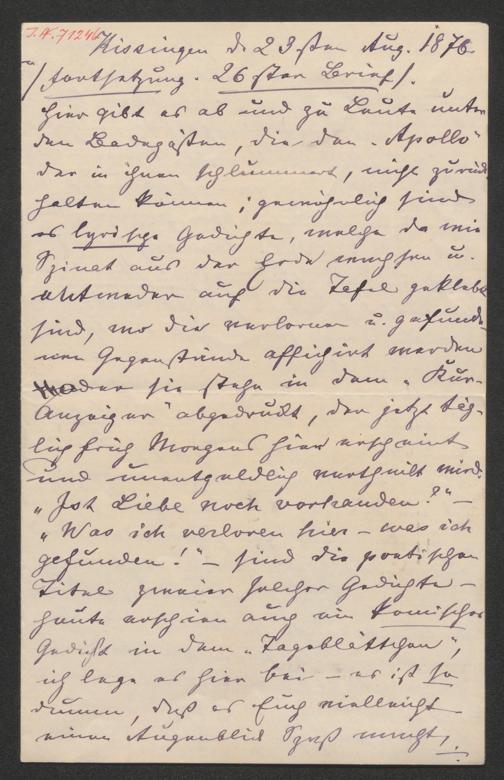 J.N. 71246
Kissingen d. 23sten Aug. 1876.
/Fortsetzung. 26ster Brief/.
Hier gibt es ab und zu Leute unter
den Badegästen, die den „Apollo"
der in ihnen schlummert, nicht zurück
halten können; gewöhnlich sind
es lyrische Gedichte, welche da wie
Spinat aus der Erde wachsen u.
entweder auf die Tafel geklebt
sind, wo die verlornen u. gefunde-
nen Gegenstände affichirt werden
oder sie stehn in dem „Kur-
Anzeiger" abgedruckt, der jetzt täg-
lich früh Morgens hier erscheint
und unentgeldlich vertheilt wird.
„Ist Liebe noch vorhanden?" –
„Was ich verloren hier – was ich
gefunden!" – sind die poetischen
Titel zweier solcher Gedichte –
heute erschien auch ein komisches
Gedicht in dem „Tageblättchen",
ich lege es hier bei – es ist so
dumm, daß es Euch vielleicht
einen Augenblick Spaß macht,